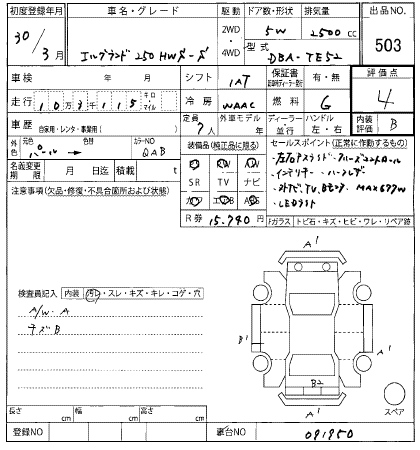 初度登録年月
30年
3月
車名・グレード
エルグランド 250 HWS
駆動
2WD
・
4WD
ドア数・形状
5W
排気量
2500cc
型式
DBA-TE52
出品NO.
503
車検
年 月
シフト
IAT
保証書
有・無
評価点
4
走行
10万3千115
キロ
マイル
冷房
WAAC
燃料
G
車歴
自家用・レンタ・事業用( )
定員
7人
外車モデル
年
ディーラー・
並行
ハンドル
左・右
内装
評価
B
外色
元色
パール→
色替
カラーNO
QAB
名義変更
期限
月 日迄
積載
t
装備品(純正品に限る)
PS PW AW
SR TV ナビ
カワ エアB ABS
R券 15,740円
セールスポイント(正常に作動するもの)
・LEDライト
注意事項(欠品・修復・不具合箇所および状態)
Fガラス
トビ石・キズ・ヒビ・ワレ・リペア跡
検査員記入
内装
汚レ・スレ・キズ・キレ・コゲ・穴
A/W・A
キズB
A1
B1
A1
B2
A1
A1
スペア
長さ cm
幅 cm
高さ cm
登録NO
車台NO
091950